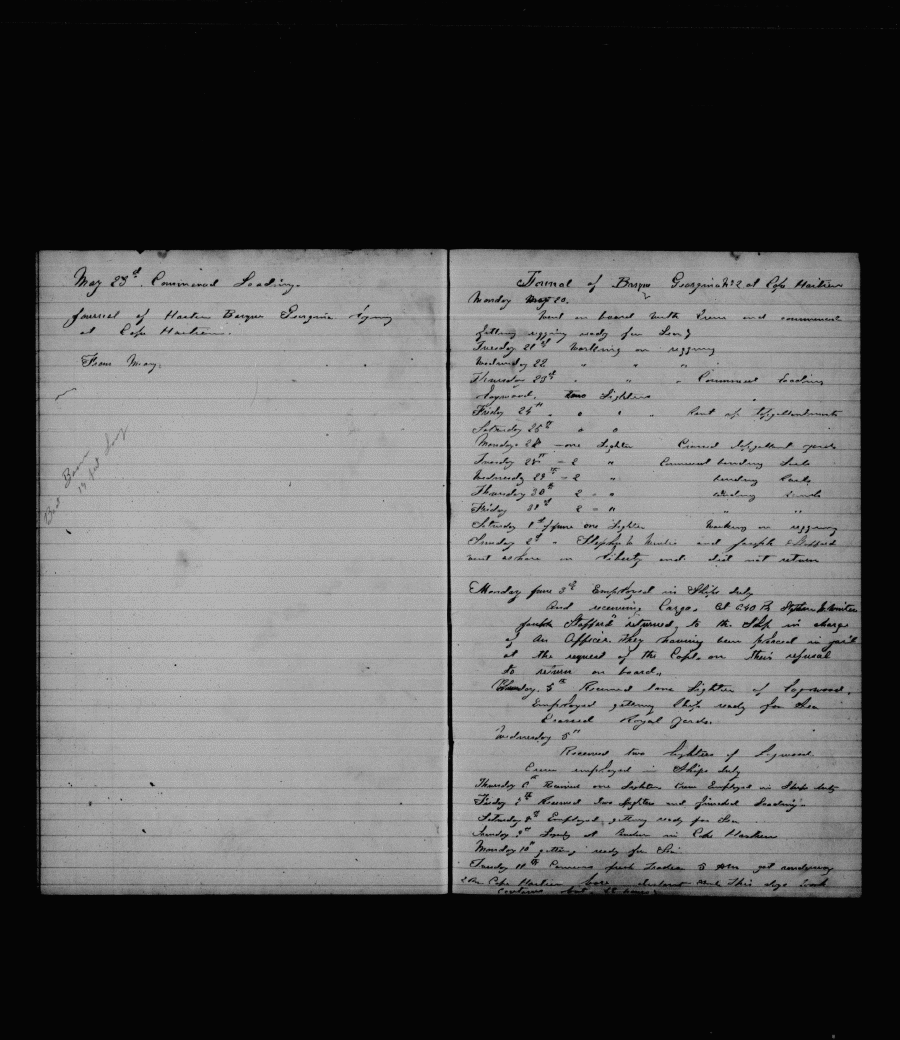 May 23d. Commenced Loading.
Journal of Haitien Barque Georgina laying
at Cape Haitien.
From May.
Journal of Barque Georgina No 2 at Cape Haitien
Monday May 20.
Went on board with Crew and commenced
getting rigging ready for Sea
Tuesday 21st Working on rigging
Wednesday 22 " " "
Thursday 23d " " " Commenced Loading
Logwood. two Lighters
Friday 24th " " " " Sent up topgallantmasts
Saturday 25th " "
Monday 28 - one Lighter Crossed topgallant yards
Tuesday 28th - 2 " Commenced bending Sails
Wednesday 29th - 2 " bending Sails
Thursday 30th 2 - " bending Sails
Friday 31st 2 - " " "
Saturday 1st June one Lighter Working on rigging
Sunday 2d " Stephen and Joseph Stafford
went ashore on liberty and did not return
Monday June 3d Employed in Ships duty
And receiving Cargo. At PM Stephen
Stafford returned to the Ship in charge
of An Officer. They having been placed in jail
at the request of the Capt. on their refusal
to return on board.
5th Received one Lighter of Logwood.
Employed getting Ship ready for Sea
Crossed Royal Yards.
Wednesday 5th
Received two lighters of Logwood
Crew employed in Ships duty
Thursday 6th Received one Lighter Crew Employed in Ships duty
Friday 7th Received two lighters and finished Loading
Saturday 8th Employed getting ready for Sea
Sunday 9th Laying at Anchor in Cape Haitien
Monday 10th getting ready for Sea
Tuesday 11th Commences fresh Trades 5 AM got underway
Cape Haitien bore distant This days work
Contains but 12 hours